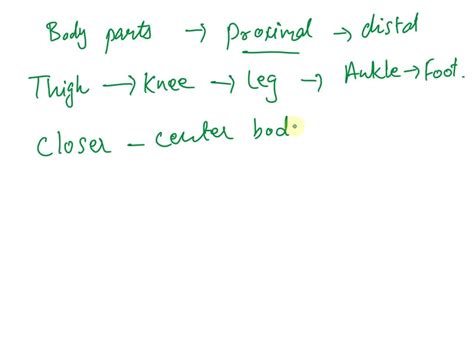 Body parts → proximal → distal
Thigh → Knee → leg → Ankle → Foot.
closer - center bod